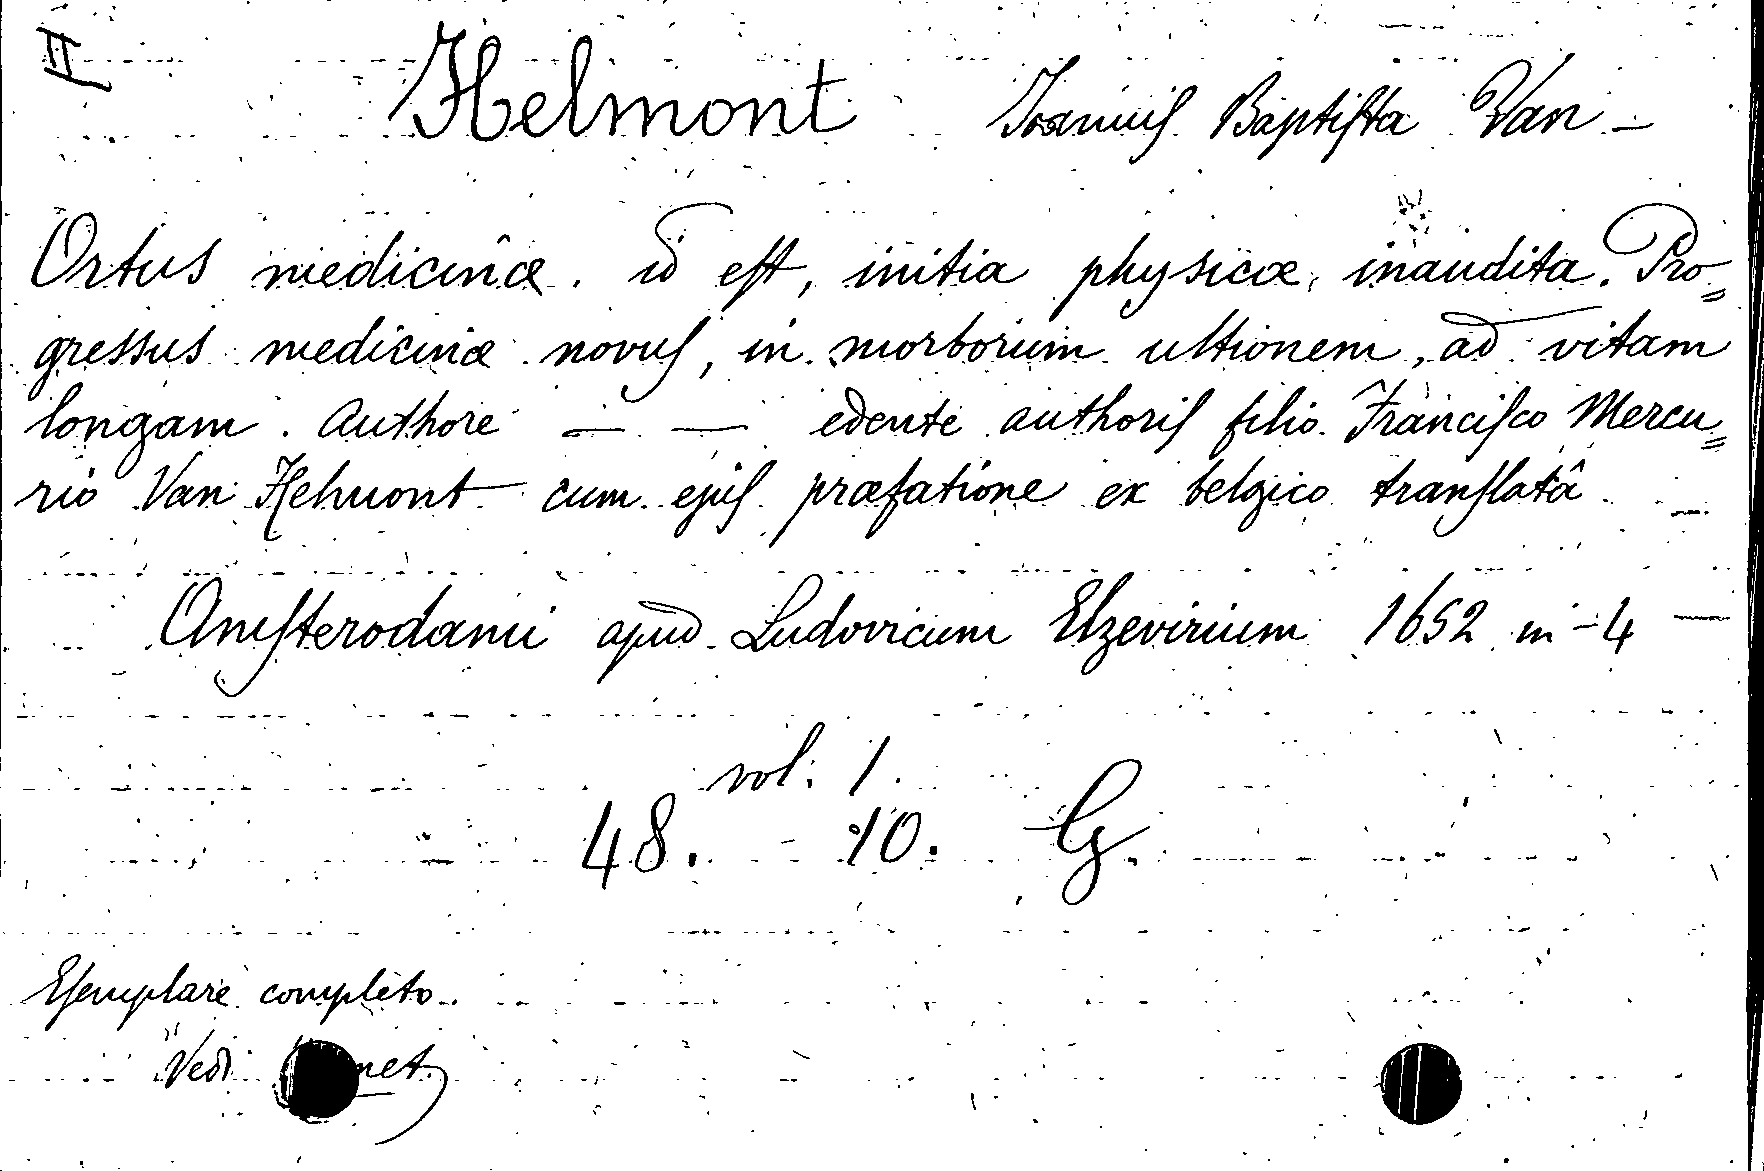 II
Helmont Joannis Baptista Van –
Ortus medicinæ. id est, initia physicæ, inaudita. Pro=
gressus medicinæ novus, in morborum ultionem, ad vitam
longam. Authore — — edente authoris filio Francisco Mercu=
rio Van Helmont cum ejus præfatione ex belgico translatâ
Amsterodami apud Ludovicum Elzevirium 1652 in-4
vol. 1.
48. 10. G.
Esemplare completo.
Vedi